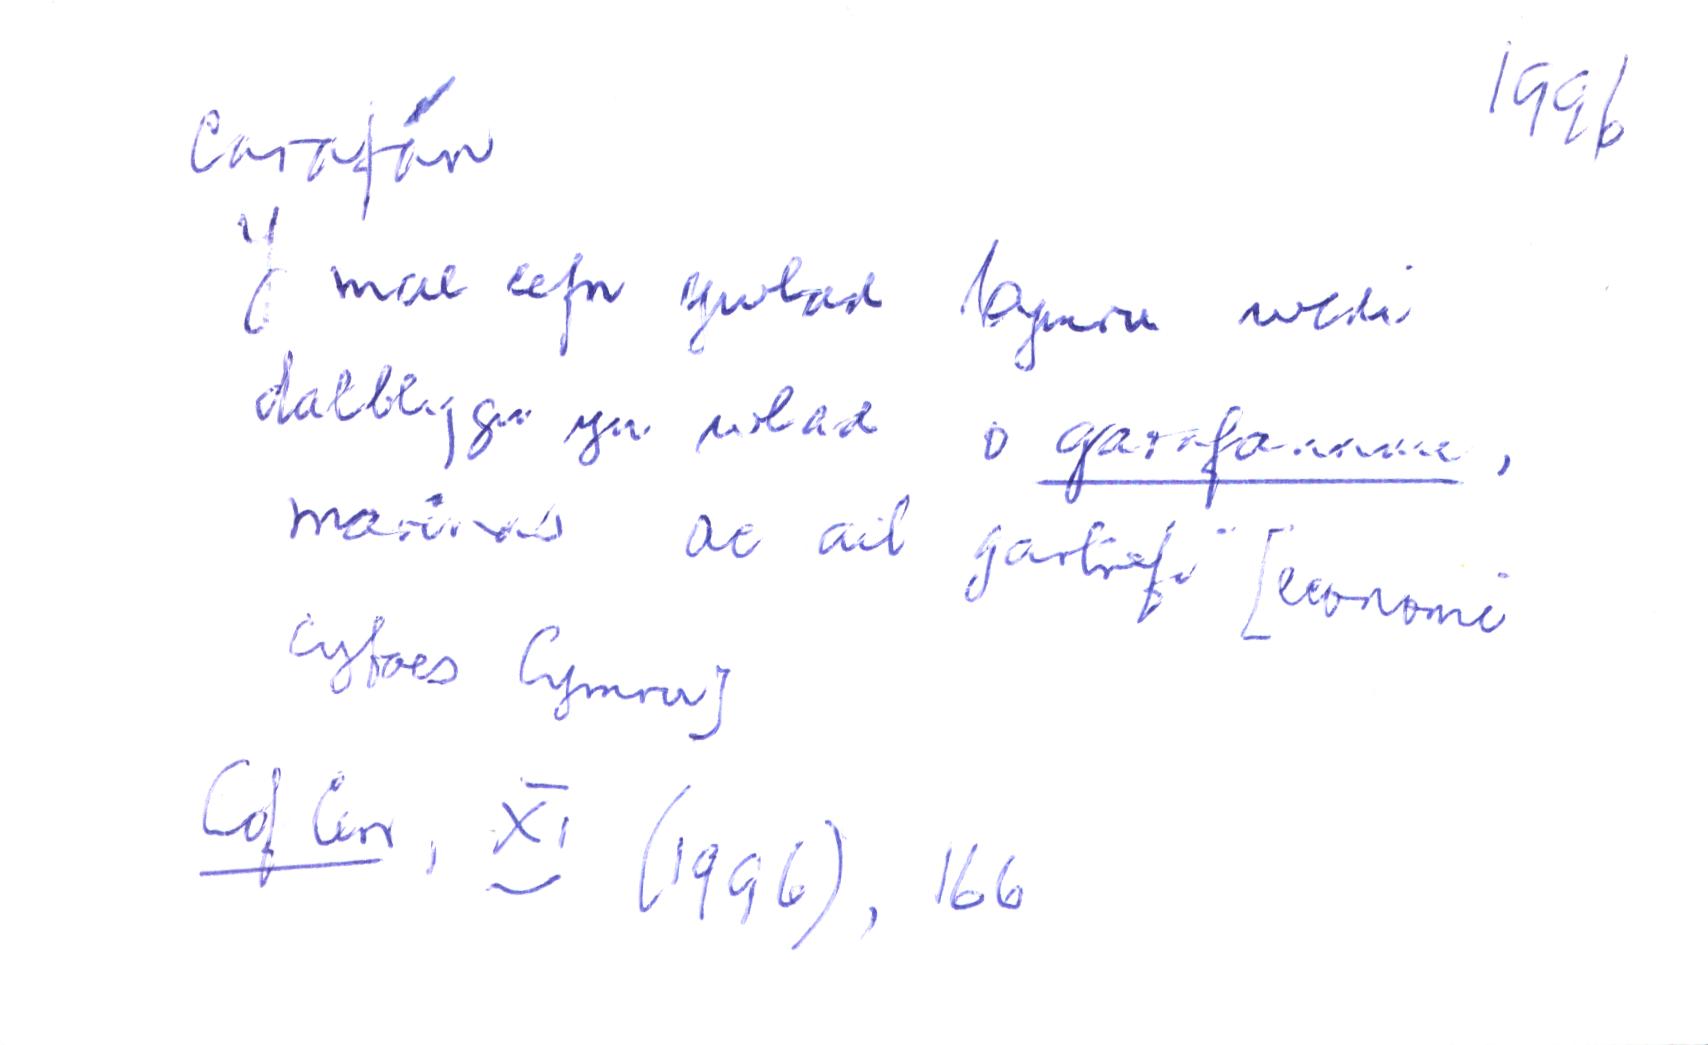 1996
carafán
Y mae cefn gwlad Cymru wedi
datblygu yn wlad o garafannau,
marinas ac ail gartrefi [economi
cyfoes Cymru]
Cof Cen, XI (1996), 166